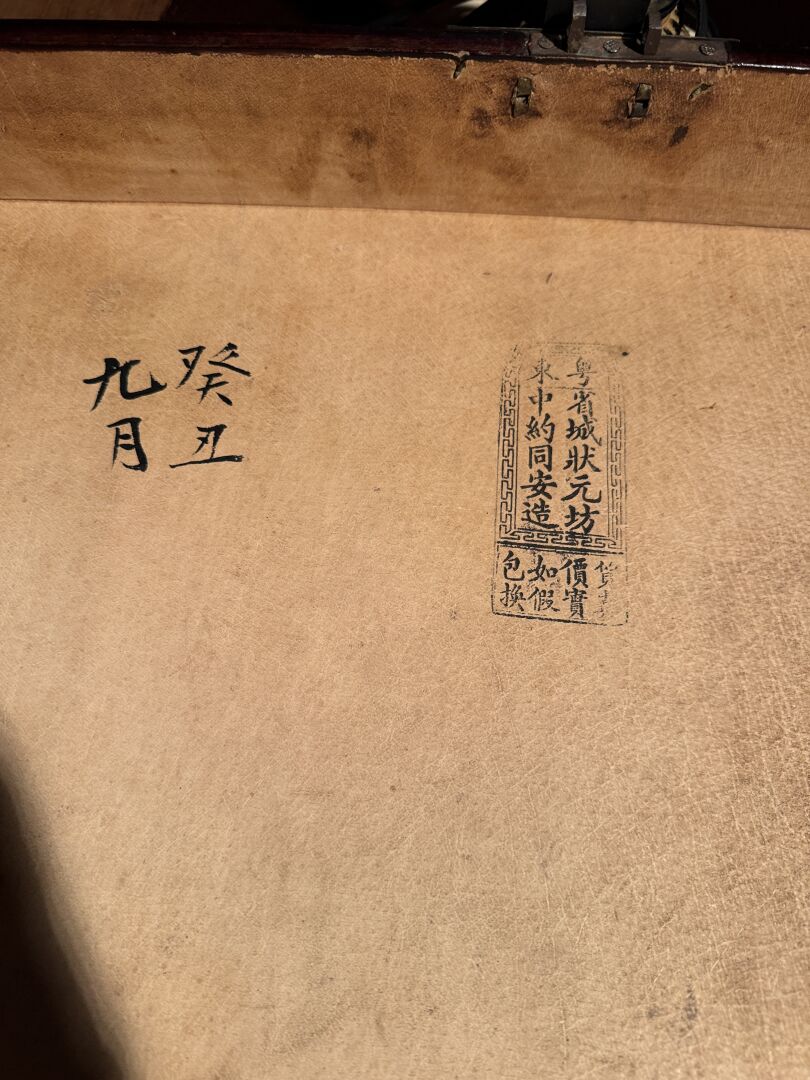 粤省城狀元坊
東中約同安造
貨真
價實
如假
包換
癸丑
九月